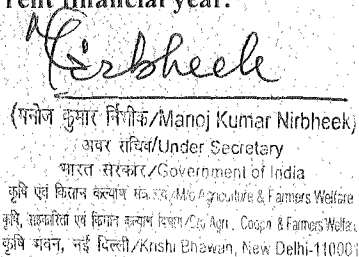 rent financial year.
Nirbheek
(मनोज कुमार निर्भीक/Manoj Kumar Nirbheek)
अवर सचिव/Under Secretary
भारत सरकार/Government of India
कृषि एवं किसान कल्याण /M/o Agriculture & Farmers Welfare
कृषि, सहकारिता एवं किसान कल्याण विभाग/D/o Agri., Coopn. & Farmers Welfare
कृषि भवन, नई दिल्ली/Krishi Bhawan, New Delhi-110001